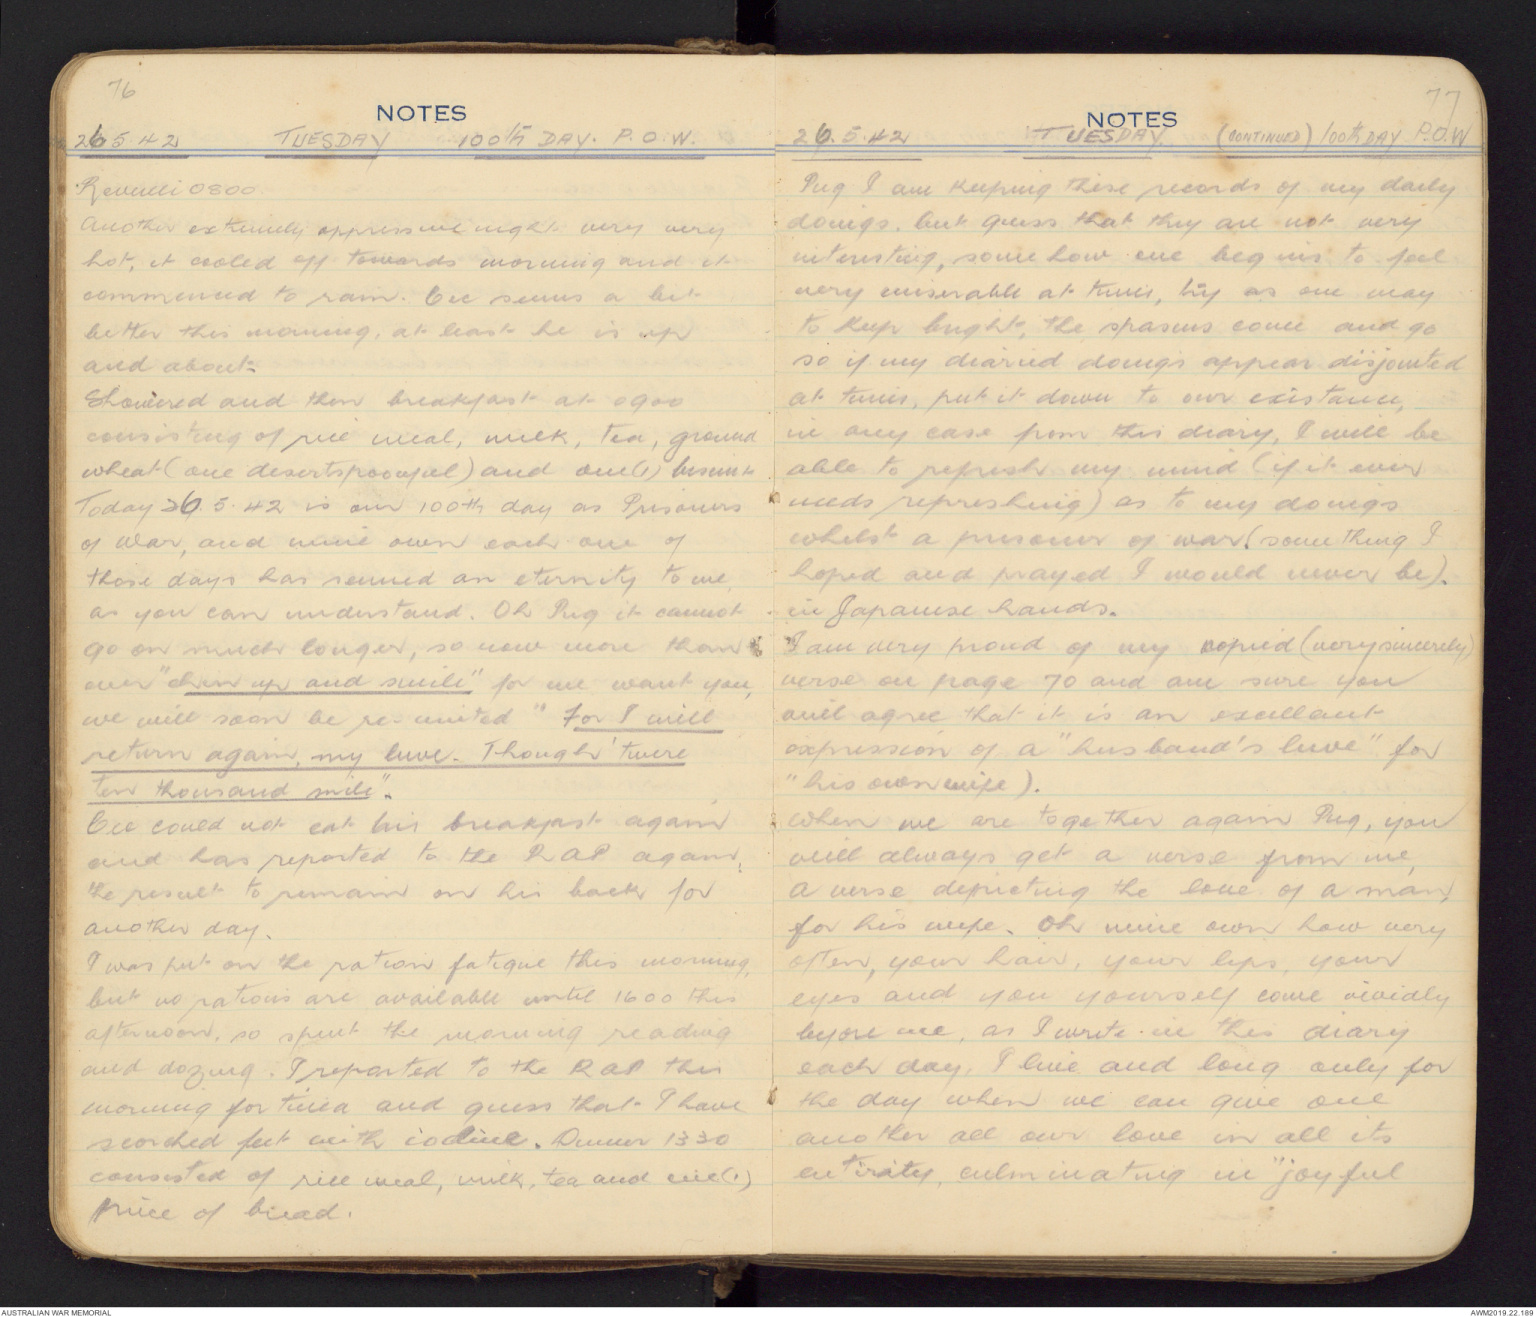 76
NOTES
26.5.42 TUESDAY 100th DAY. P.O.W.
Reveille 0800.
Another extremely oppressive night very very
hot, it cooled off towards morning and it
commenced to rain. Cec seems a bit
better this morning, at least he is up
and about.
Showered and then breakfast at 0900
consisting of rice meal, milk, tea, ground
wheat (one desertspoonful) and one (1) biscuit
Today 26.5.42 is our 100th day as Prisoners
of War, and mine own each one of
those days has seemed an eternity to me,
as you can understand. Oh Pug it cannot
go on much longer, so now more than
ever "chin up and smile" for we want you,
we will soon be re-united "For I will
return again, my luve. Though 'twere
ten thousand mile".
Cec could not eat his breakfast again
and has reported to the RAP again,
the result to remain on his back for
another day.
I was put on the ration fatigue this morning,
but no rations are available until 1600 this
afternoon, so spent the morning reading
and dozing. I reported to the RAP this
morning for tinea and guess that I have
scorched feet with iodine. Dinner 1330
consisted of rice meal, milk, tea and one (1)
piece of bread.
77
NOTES
26.5.42 TUESDAY (CONTINUED) 100th DAY P.O.W
Pug I am keeping these records of my daily
doings, but guess that they are not very
interesting, somehow one begins to feel
very miserable at times, try as one may
to keep bright, the spasms come and go
so if my diaried doings appear disjointed
at times, put it down to our existance,
in any case from this diary, I will be
able to refresh my mind (if it ever
needs refreshing) as to my doings
whilst a prisoner of war (something I
hoped and prayed I would never be).
in Japanese hands.
I am very proud of my copied (very sincerely)
verse on page 70 and am sure you
will agree that it is an excellant
expression of a "husband's luve" for
"his own wife).
When we are together again Pug, you
will always get a verse from me,
a verse depicting the love of a man
for his wife. Oh mine own how very
often, your hair, your lips, your
eyes and you yourself come vividly
before me, as I write in this diary
each day, I live and long only for
the day when we can give one
another all our love in all its
entirity, culminating in "joyful
AUSTRALIAN WAR MEMORIAL
AWM2019.22.189